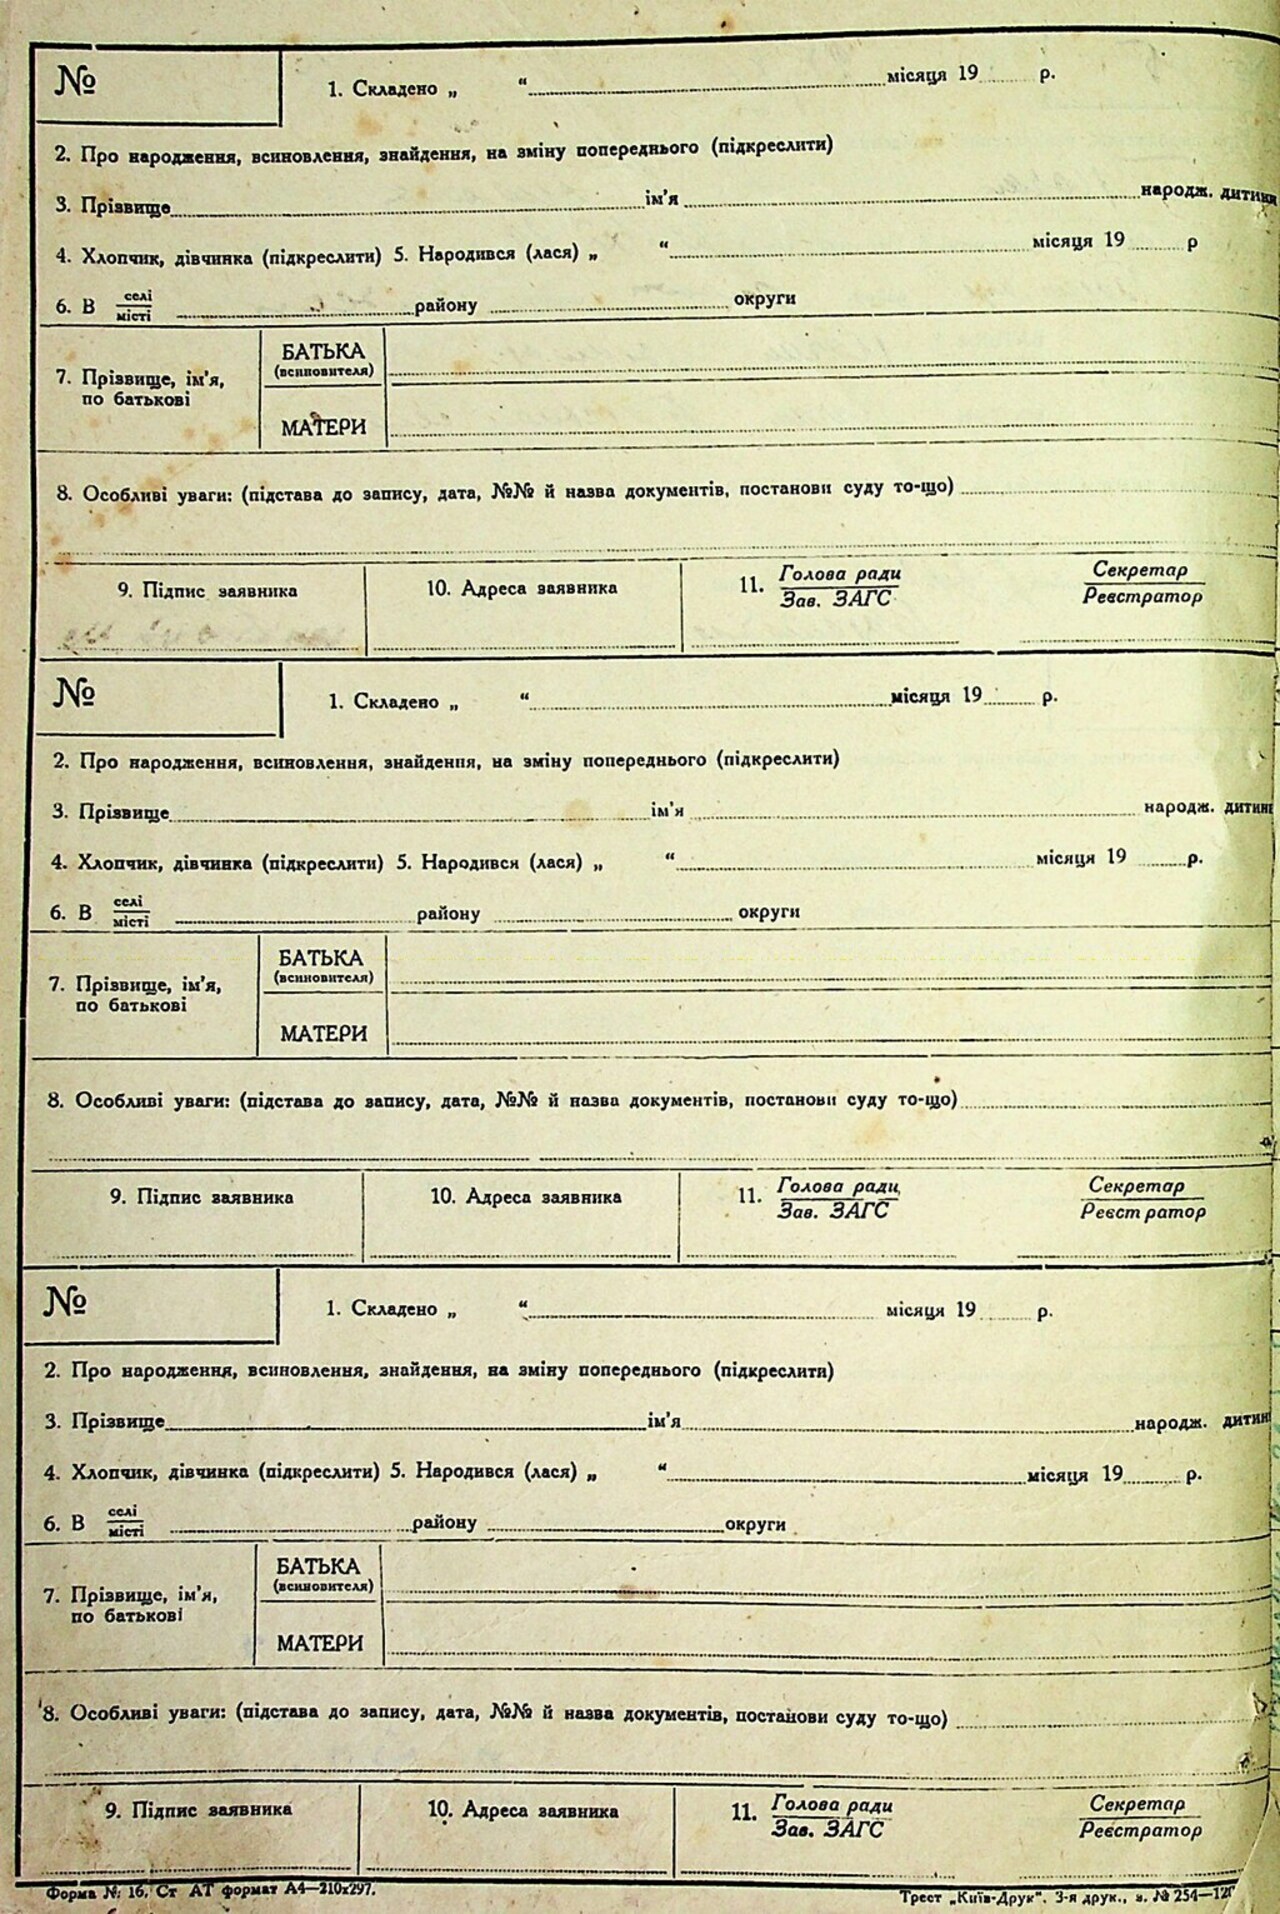 №
1. Складено „ “ місяця 19 р.
2. Про народження, всиновлення, знайдення, на зміну попереднього (підкреслити)
3. Прізвище ім’я народж. дитини
4. Хлопчик, дівчинка (підкреслити) 5. Народився (лася) „ “ місяця 19 р
6. В селі/місті району округи
7. Прізвище, ім’я, по батькові
БАТЬКА (всиновителя)
МАТЕРИ
8. Особливі уваги: (підстава до запису, дата, №№ й назва документів, постанови суду то-що)
9. Підпис заявника 10. Адреса заявника 11. Голова ради/Зав. ЗАГС Секретар/Реєстратор
№
1. Складено „ “ місяця 19 р.
2. Про народження, всиновлення, знайдення, на зміну попереднього (підкреслити)
3. Прізвище ім’я народж. дитини
4. Хлопчик, дівчинка (підкреслити) 5. Народився (лася) „ “ місяця 19 р.
6. В селі/місті району округи
7. Прізвище, ім’я, по батькові
БАТЬКА (всиновителя)
МАТЕРИ
8. Особливі уваги: (підстава до запису, дата, №№ й назва документів, постанови суду то-що)
9. Підпис заявника 10. Адреса заявника 11. Голова ради/Зав. ЗАГС Секретар/Реєстратор
№
1. Складено „ “ місяця 19 р.
2. Про народження, всиновлення, знайдення, на зміну попереднього (підкреслити)
3. Прізвище ім’я народж. дитини
4. Хлопчик, дівчинка (підкреслити) 5. Народився (лася) „ “ місяця 19 р.
6. В селі/місті району округи
7. Прізвище, ім’я, по батькові
БАТЬКА (всиновителя)
МАТЕРИ
8. Особливі уваги: (підстава до запису, дата, №№ й назва документів, постанови суду то-що)
9. Підпис заявника 10. Адреса заявника 11. Голова ради/Зав. ЗАГС Секретар/Реєстратор
Форма № 16. Ст АТ формат А4—210х297. Трест „Київ-Друк“. 3-я друк., з. № 254—120